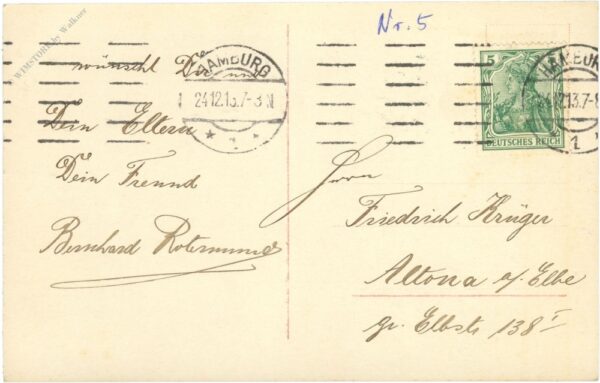 WIMSTORE by Walkner
Nr. 5
wünscht Dir und
Dein Eltern
Dein Freund
Bernhard Rotermund
HAMBURG
24.12.13.7-8 N
* 1 *
5
DEUTSCHES REICH
HAMBURG
24.12.13.7-8
1
Herrn
Friedrich Krüger
Altona a/Elbe
gr. Elbstr 138 I